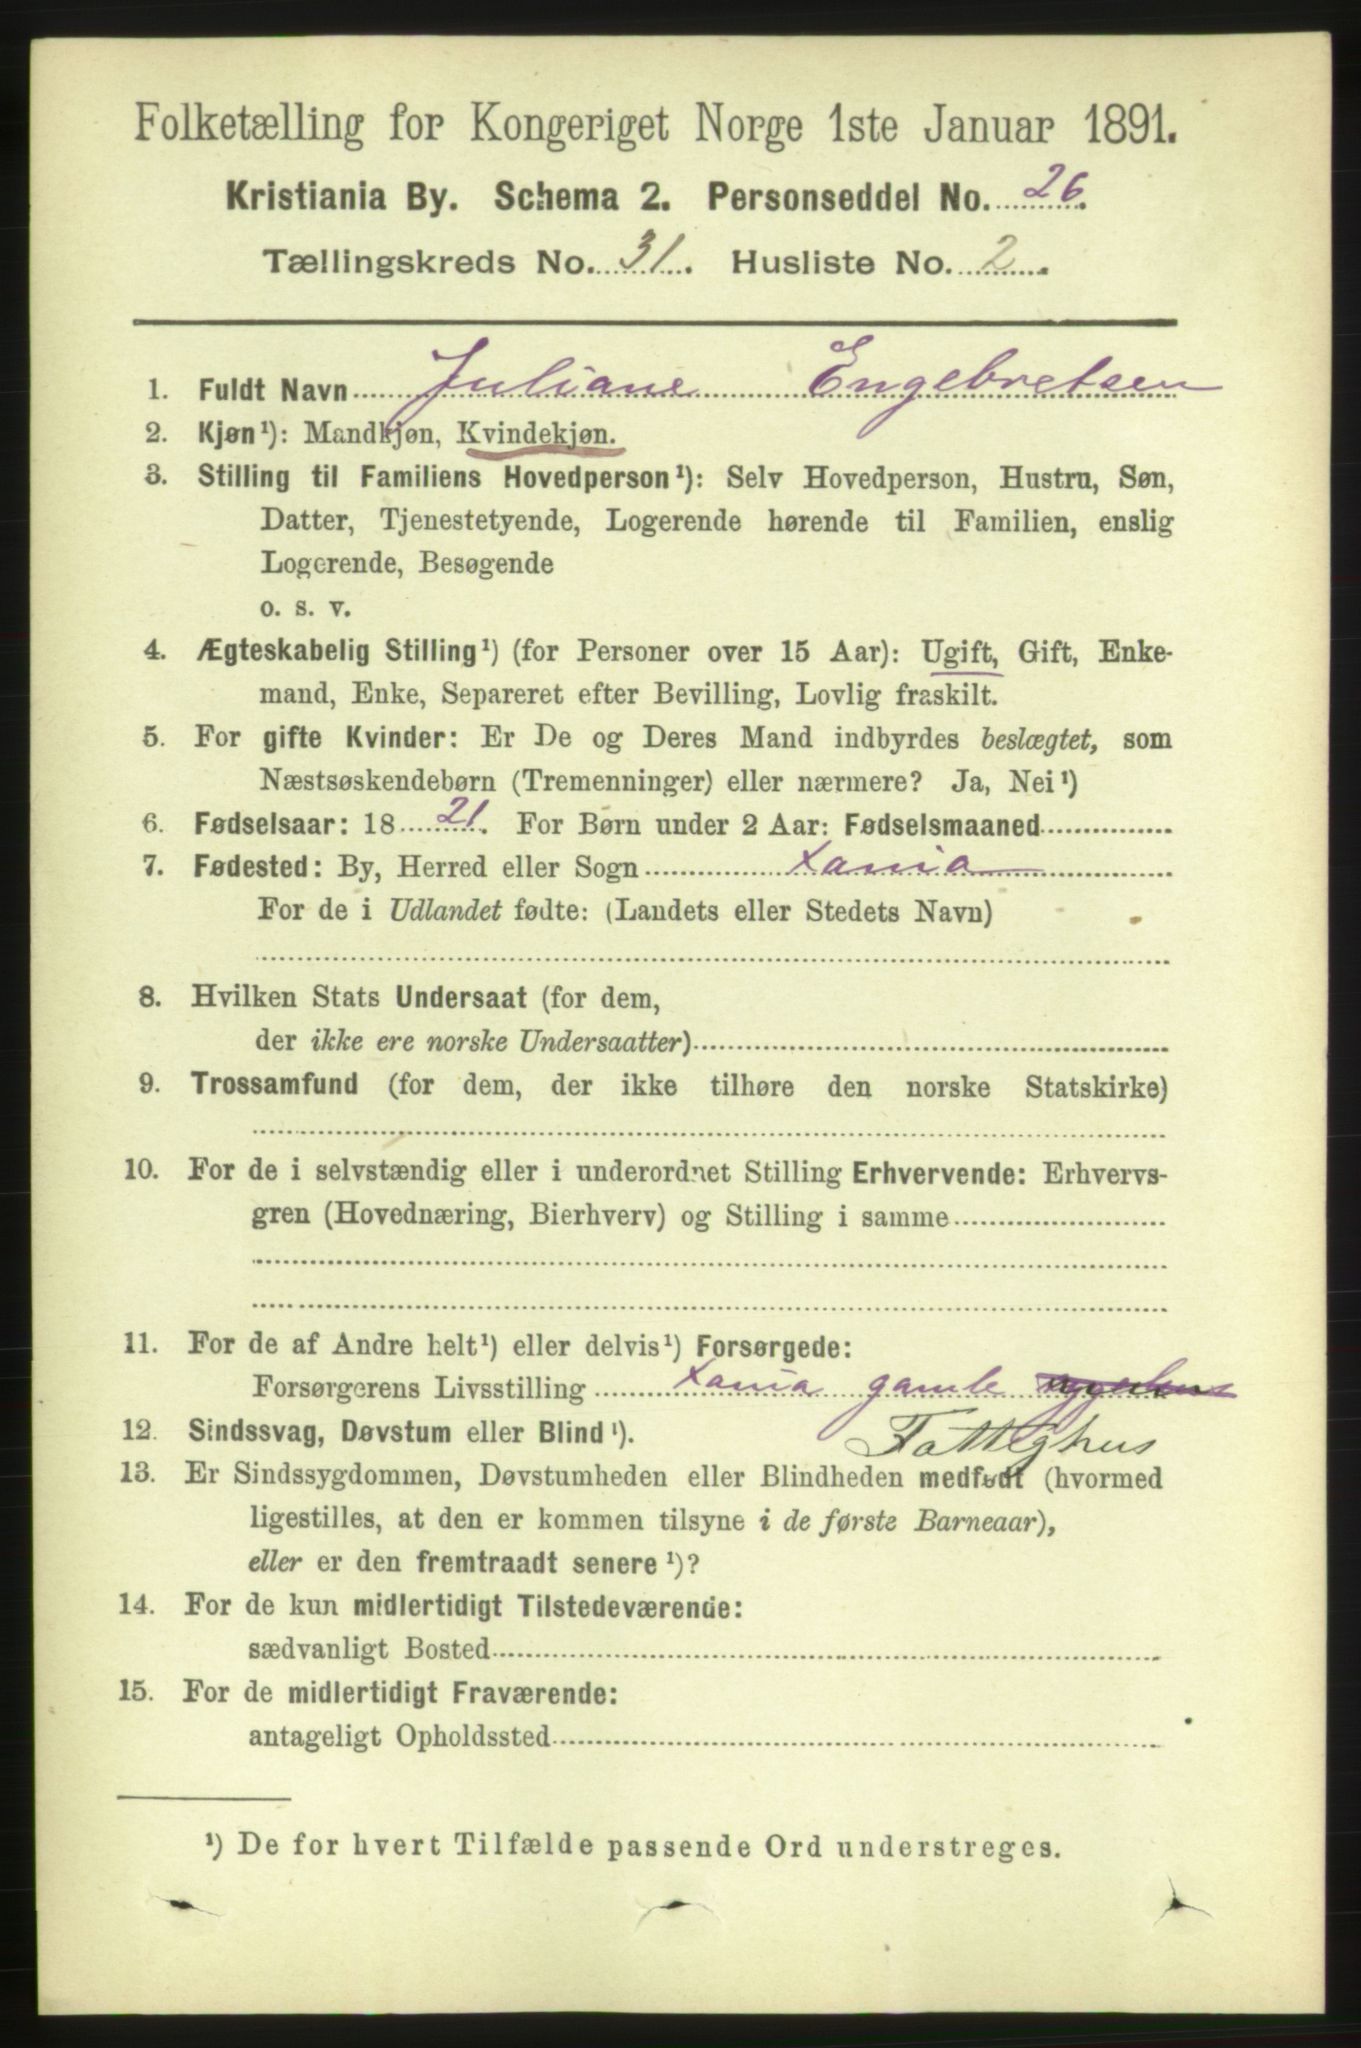 Folketælling for Kongeriget Norge 1ste Januar 1891.
Kristiania By. Schema 2. Personseddel No. 26.
Tællingskreds No. 31. Husliste No. 2.
1. Fuldt Navn Juliane Engebretsen
2. Kjøn¹): Mandkjøn, Kvindekjøn.
3. Stilling til Familiens Hovedperson¹): Selv Hovedperson, Hustru, Søn,
Datter, Tjenestetyende, Logerende hørende til Familien, enslig
Logerende, Besøgende
o. s. v.
4. Ægteskabelig Stilling¹) (for Personer over 15 Aar): Ugift, Gift, Enke-
mand, Enke, Separeret efter Bevilling, Lovlig fraskilt.
5. For gifte Kvinder: Er De og Deres Mand indbyrdes beslægtet, som
Næstsøskendebørn (Tremenninger) eller nærmere? Ja, Nei¹)
6. Fødselsaar: 1821. For Børn under 2 Aar: Fødselsmaaned
7. Fødested: By, Herred eller Sogn Xania
For de i Udlandet fødte: (Landets eller Stedets Navn)
8. Hvilken Stats Undersaat (for dem,
der ikke ere norske Undersaatter)
9. Trossamfund (for dem, der ikke tilhøre den norske Statskirke)
10. For de i selvstændig eller i underordnet Stilling Erhvervende: Erhvervs-
gren (Hovednæring, Bierhverv) og Stilling i samme
11. For de af Andre helt¹) eller delvis¹) Forsørgede:
Forsørgerens Livsstilling Xania gamle
Fattighus
12. Sindssvag, Døvstum eller Blind¹).
13. Er Sindssygdommen, Døvstumheden eller Blindheden medfødt (hvormed
ligestilles, at den er kommen tilsyne i de første Barneaar),
eller er den fremtraadt senere¹)?
14. For de kun midlertidigt Tilstedeværende:
sædvanligt Bosted
15. For de midlertidigt Fraværende:
antageligt Opholdssted
¹) De for hvert Tilfælde passende Ord understreges.